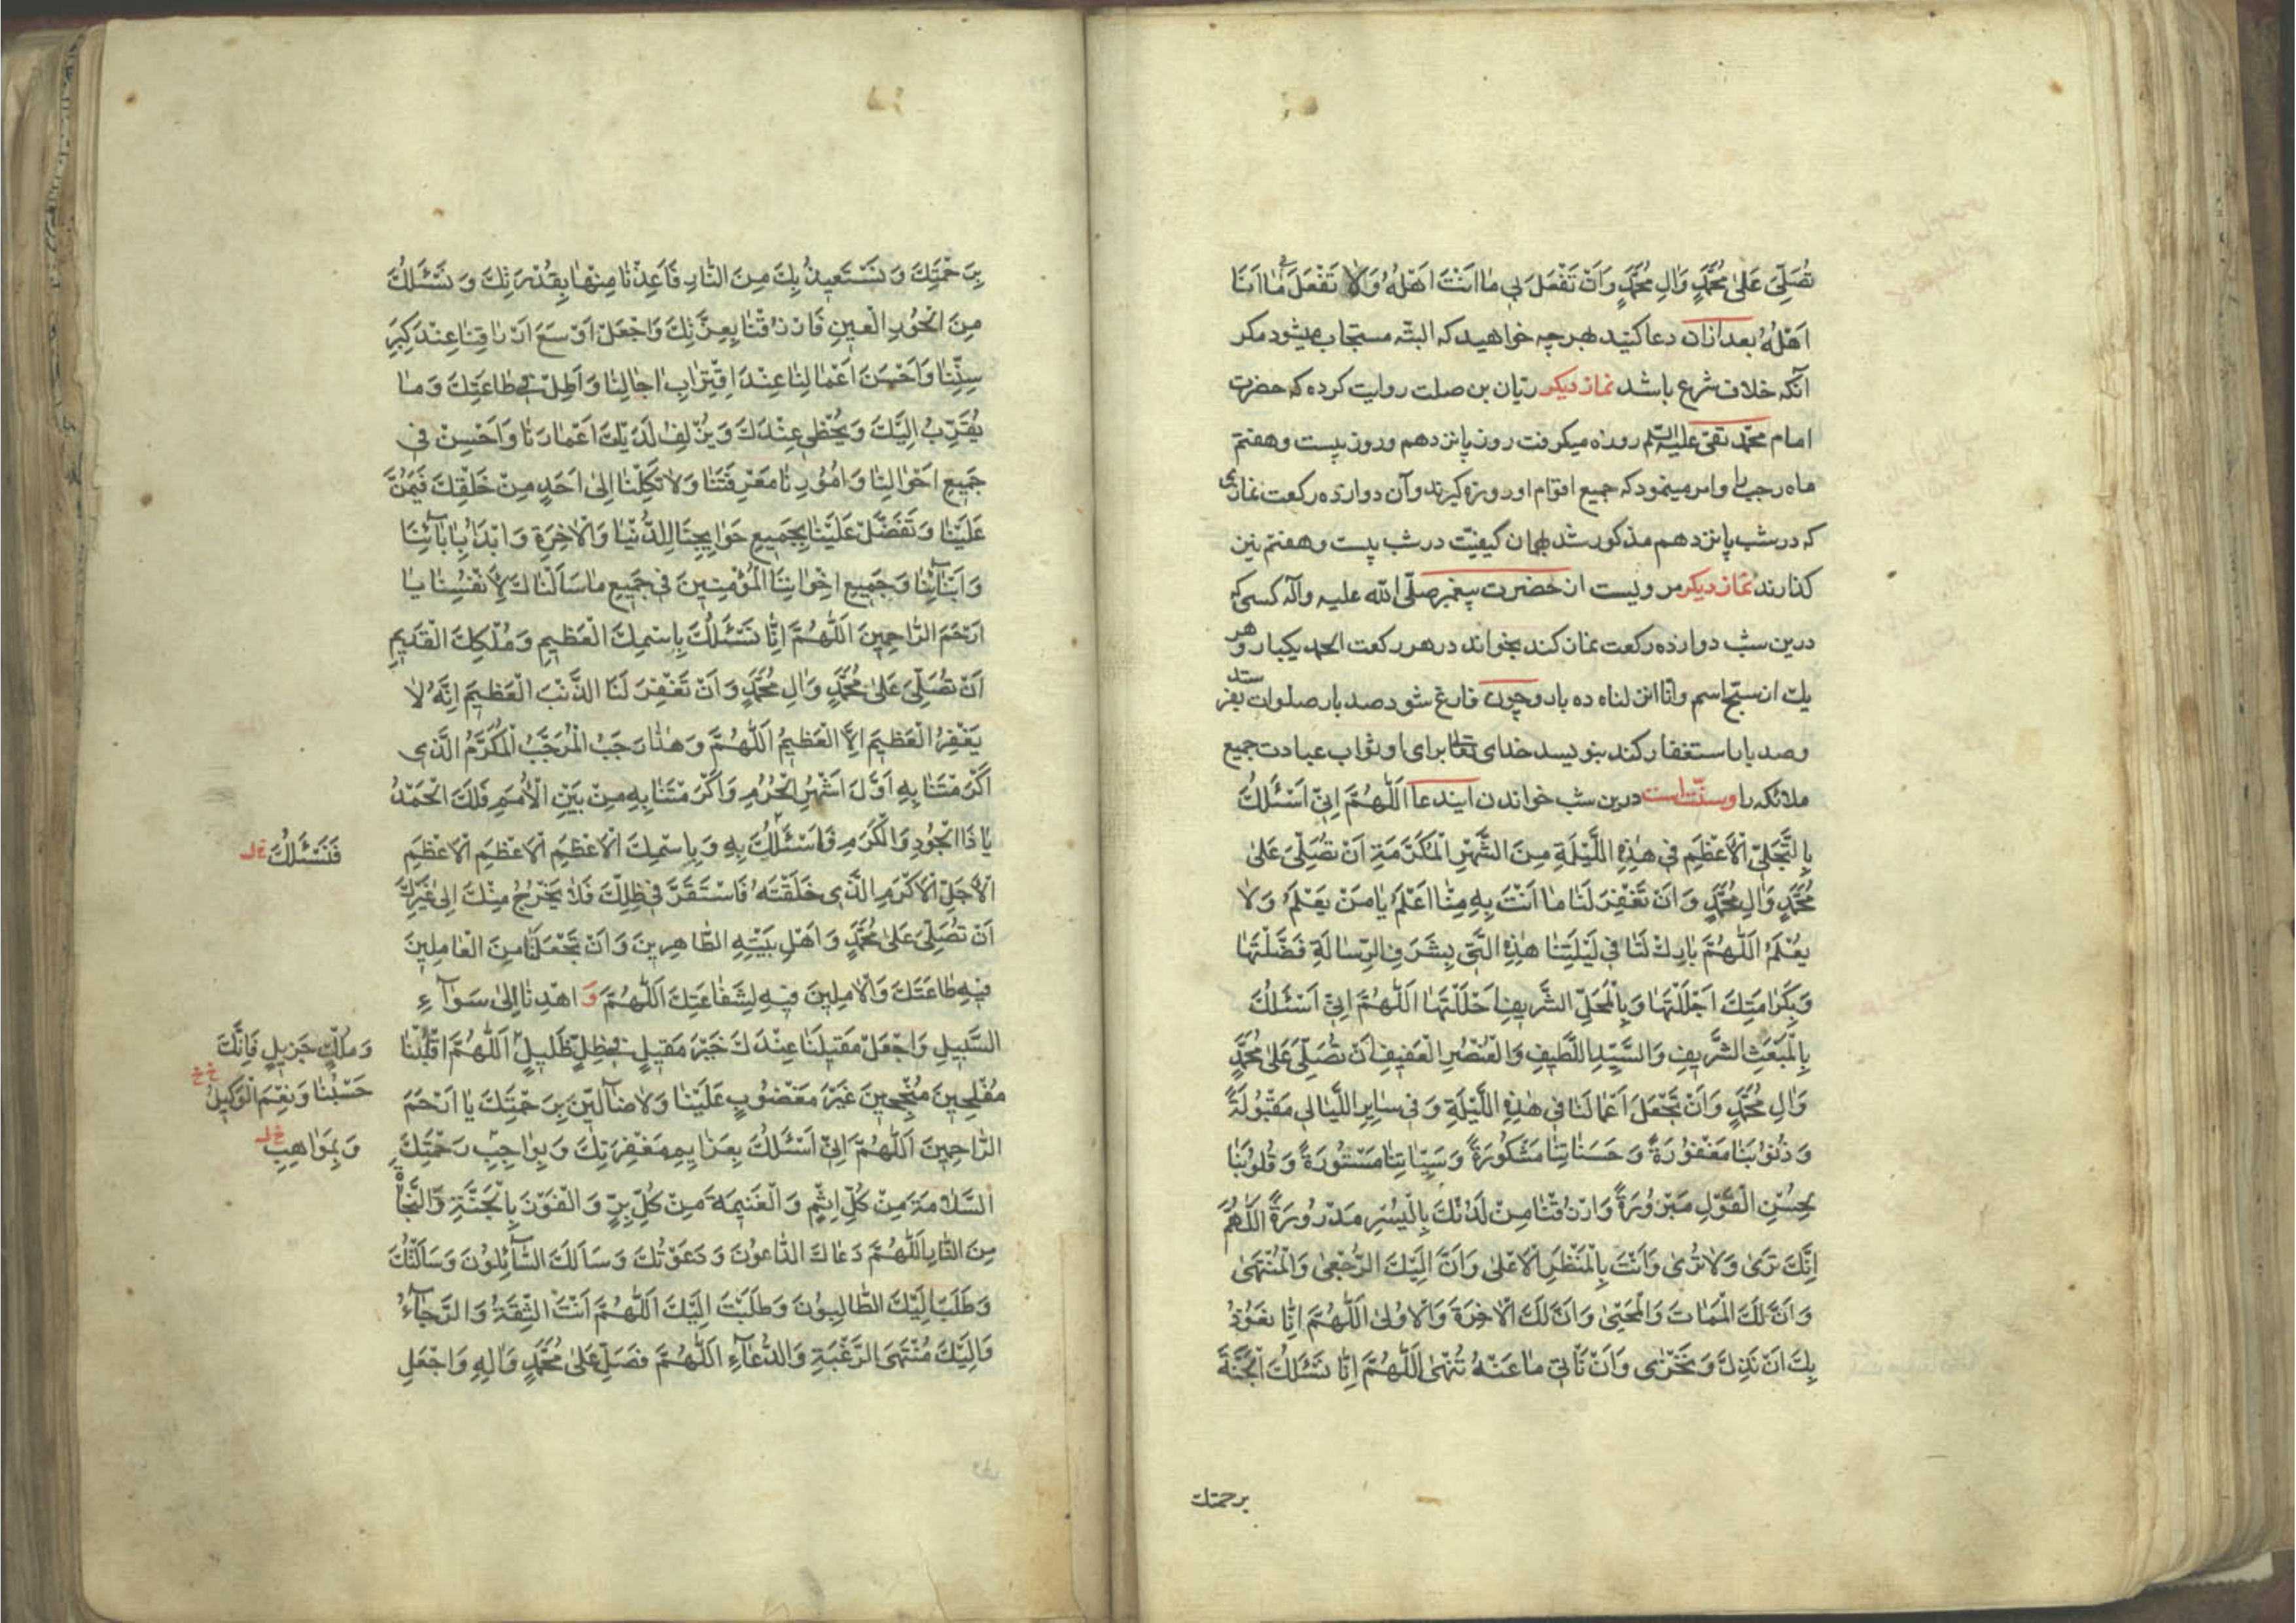 تُصَلِّيَ عَلىٰ مُحَمَّدٍ وَاٰلِ مُحَمَّدٍ وَاَنْ تَفْعَلَ بى مٰا اَنْتَ اَهْلُهُ وَلاٰ تَفْعَلَ مٰا اَنَا
اَهْلُهُ بعد ازان دعا کنید هرچه خواهید که البته مستجاب میشود مکر
آنکه خلاف شرع باشد نماز دیکر ریّان بن صلت روایت کرده که حضرت
امام محمّد تقی علیه السّلم روزه میکرفت روز پانزدهم وروز بیست وهفتم
ماه رجب را وامر مینمود که جمیع اقوام او روزه کیرند وآن دوازده رکعت نمازی
که در شب پانزدهم مذکور شد بهمان کیفیّت در شب بیست وهفتم نیز
کذارند نماز دیکر مرویست از حضرت پیغمبر صلّی الله علیه وآله کسی که
درین شب دوازده رکعت نماز کند بخواند در هر رکعت الحمد یکبار و هر
یک از سبّح اسم وانّا انزلناه ده بار وچون فارغ شود صد بار صلوات بفرستد
وصد بار استغفار کند بنویسد خدای تعالی برای او ثواب عبادت جمیع
ملائکه را وسنّت است درین شب خواندن ایندعا اَللّٰهُمَّ اِنّى اَسْئَلُكَ
بِالتَّجَلّىِ الْاَعْظَمِ فى هٰذِهِ اللَّيْلَةِ مِنَ الشَّهْرِ الْمُكَرَّمَةِ اَنْ تُصَلِّىَ عَلىٰ
مُحَمَّدٍ وَاٰلِ مُحَمَّدٍ وَ اَنْ تَغْفِرَ لَنٰا مٰا اَنْتَ بِهِ مِنّٰا اَعْلَمُ يٰا مَنْ يَعْلَمُ وَلاٰ
يُعْلَمُ اَللّٰهُمَّ بٰارِكْ لَنٰا فى لَيْلَتِنٰا هٰذِهِ الَّتى بِشَرَفِ الرِّسٰالَةِ فَضَّلْتَهٰا
وَبِكَرٰامَتِكَ اَجْلَلْتَهٰا وَبِالْمَحَلِّ الشَّريفِ اَحْلَلْتَهٰا اَللّٰهُمَّ اِنّى اَسْئَلُكَ
بِالْمَبْعَثِ الشَّريفِ وَالسَّيِّدِ اللَّطيفِ وَالْعُنْصُرِ الْعَفيفِ اَنْ تُصَلِّىَ عَلىٰ مُحَمَّدٍ
وَاٰلِ مُحَمَّدٍ وَاَنْ تَجْعَلَ اَعْمٰالَنٰا فى هٰذِهِ اللَّيْلَةِ وَ فى سٰايِرِ اللَّيٰالى مَقْبُولَةً
وَ ذُنُوبَنٰا مَغْفُورَةً وَ حَسَنٰاتِنٰا مَشْكُورَةً وَ سَيِّئٰاتِنٰا مَسْتُورَةً وَ قُلُوبَنٰا
بِحُسْنِ الْقَوْلِ مَبْرُورَةً وَ اَرْزٰاقَنٰا مِنْ لَدُنْكَ بِالْيُسْرِ مَدْرُورَةً اَللّٰهُمَّ
اِنَّكَ تَرىٰ وَلاٰ تُرىٰ وَاَنْتَ بِالْمَنْظَرِ الْاَعْلىٰ وَاَنَّ اِلَيْكَ الرُّجْعىٰ وَالْمُنْتَهىٰ
وَ اَنَّ لَكَ الْمَمٰاتَ وَالْمَحْيىٰ وَاَنَّ لَكَ الْاٰخِرَةَ وَالْاُولىٰ اَللّٰهُمَّ اِنّٰا نَعُوذُ
بِكَ اَنْ نَذِلَّ وَ نَخْزىٰ وَاَنْ نَأْتِىَ مٰا عَنْهُ تُنْهىٰ اَللّٰهُمَّ اِنّٰا نَسْئَلُكَ الْجَنَّةَ
برحمتك
بِرَحْمَتِكَ وَ نَسْتَعيذُ بِكَ مِنَ النّٰارِ فَاَعِذْنٰا مِنْهٰا بِقُدْرَتِكَ وَ نَسْئَلُكَ
مِنَ الْحُورِ الْعينِ فَارْزُقْنٰا بِعِزَّتِكَ وَاجْعَلْ اَوْسَعَ اَرْزٰاقِنٰا عِنْدَ كِبَرِ
سِنِّنٰا وَاَحْسَنَ اَعْمٰالِنٰا عِنْدَ اقْتِرٰابِ اٰجٰالِنٰا وَاَطِلْ فى طٰاعَتِكَ وَ مٰا
يُقَرِّبُ اِلَيْكَ وَ يُحْظى عِنْدَكَ وَ يُزْلِفُ لَدَيْكَ اَعْمٰارَنٰا وَاَحْسِنْ فى
جَميعِ اَحْوٰالِنٰا وَ اُمُورِنٰا مَعْرِفَتَنٰا وَلاٰ تَكِلْنٰا اِلىٰ اَحَدٍ مِنْ خَلْقِكَ فَيَمُنَّ
عَلَيْنٰا وَ تَفَضَّلْ عَلَيْنٰا بِجَميعِ حَوٰايِجِنٰا لِلدُّنْيٰا وَالْاٰخِرَةِ وَ ابْدَاْ بِاٰبٰآئِنٰا
وَ اَبْنٰآئِنٰا وَ جَميعِ اِخْوٰانِنَا الْمُؤْمِنينَ فى جَميعِ مٰا سَاَلْنٰاكَ لِاَنْفُسِنٰا يٰا
اَرْحَمَ الرّٰاحِمينَ اَللّٰهُمَّ اِنّٰا نَسْئَلُكَ بِاسْمِكَ الْعَظيمِ وَ مُلْكِكَ الْقَديمِ
اَنْ تُصَلِّىَ عَلىٰ مُحَمَّدٍ وَ اٰلِ مُحَمَّدٍ وَ اَنْ تَغْفِرَ لَنَا الذَّنْبَ الْعَظيمَ اِنَّهُ لاٰ
يَغْفِرُ الْعَظيمَ اِلاَّ الْعَظيمُ اَللّٰهُمَّ وَ هٰذٰا رَجَبُ الْمُرَجَّبُ الْمُكَرَّمُ الَّذى
اَكْرَمْتَنٰا بِهِ اَوَّلَ اَشْهُرِ الْحُرُمِ وَ اَكْرَمْتَنٰا بِهِ مِنْ بَيْنِ الْاُمَمِ فَلَكَ الْحَمْدُ
يٰا ذَا الْجُودِ وَالْكَرَمِ وَاَسْئَلُكَ بِهِ وَ بِاسْمِكَ الْاَعْظَمِ الْاَعْظَمِ الْاَعْظَمِ
فَنَسْئَلُكَ خ ل
الْاَجَلِّ الْاَكْرَمِ الَّذى خَلَقْتَهُ فَاسْتَقَرَّ فى ظِلِّكَ فَلاٰ يَخْرُجُ مِنْكَ اِلىٰ غَيْرِكَ
اَنْ تُصَلِّىَ عَلىٰ مُحَمَّدٍ وَ اَهْلِ بَيْتِهِ الطّٰاهِرينَ وَ اَنْ تَجْعَلَنٰا مِنَ الْعٰامِلينَ
فيهِ طٰاعَتَكَ وَالْاٰمِلينَ فيهِ لِشَفٰاعَتِكَ اَللّٰهُمَّ وَ اهْدِنٰا اِلىٰ سَوٰآءِ
السَّبيلِ وَ اجْعَلْ مَقيلَنٰا عِنْدَكَ خَيْرَ مَقيلٍ فى ظِلٍّ ظَليلٍ اَللّٰهُمَّ اقْلِبْنٰا
وَ مُلْكٍ جَزيلٍ فَاِنَّكَ
حَسْبُنٰا وَ نِعْمَ الْوَكيلُ خ خ
مُفْلِحينَ مُنْجِحينَ غَيْرَ مَغْضُوبٍ عَلَيْنٰا وَلاٰ ضٰآلّينَ بِرَحْمَتِكَ يٰا اَرْحَمَ
الرّٰاحِمينَ اَللّٰهُمَّ اِنّى اَسْئَلُكَ بِعَزٰايِمِ مَغْفِرَتِكَ وَ بِوٰاجِبِ رَحْمَتِكَ
وَ بِمَوٰاهِبِ خ ل
السَّلاٰمَةَ مِنْ كُلِّ اِثْمٍ وَ الْغَنيمَةَ مِنْ كُلِّ بِرٍّ وَ الْفَوْزَ بِالْجَنَّةِ وَالنَّجٰاةَ
مِنَ النّٰارِ اَللّٰهُمَّ دَعٰاكَ الدّٰاعُونَ وَ دَعَوْتُكَ وَ سَاَلَكَ السّٰآئِلُونَ وَ سَاَلْتُكَ
وَ طَلَبَ اِلَيْكَ الطّٰالِبُونَ وَ طَلَبْتُ اِلَيْكَ اَللّٰهُمَّ اَنْتَ الثِّقَةُ وَ الرَّجٰآءُ
وَ اِلَيْكَ مُنْتَهَى الرَّغْبَةِ وَ الدُّعٰآءِ اَللّٰهُمَّ فَصَلِّ عَلىٰ مُحَمَّدٍ وَ اٰلِهِ وَ اجْعَلِ